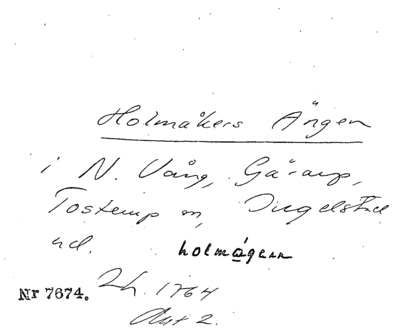 Holmåkers Ängen
i N. Vång, Gärarp,
Tosterup sn, Ingelstad
hd. holmågern
Nr 7674. Lh. 1764
Akt 2.